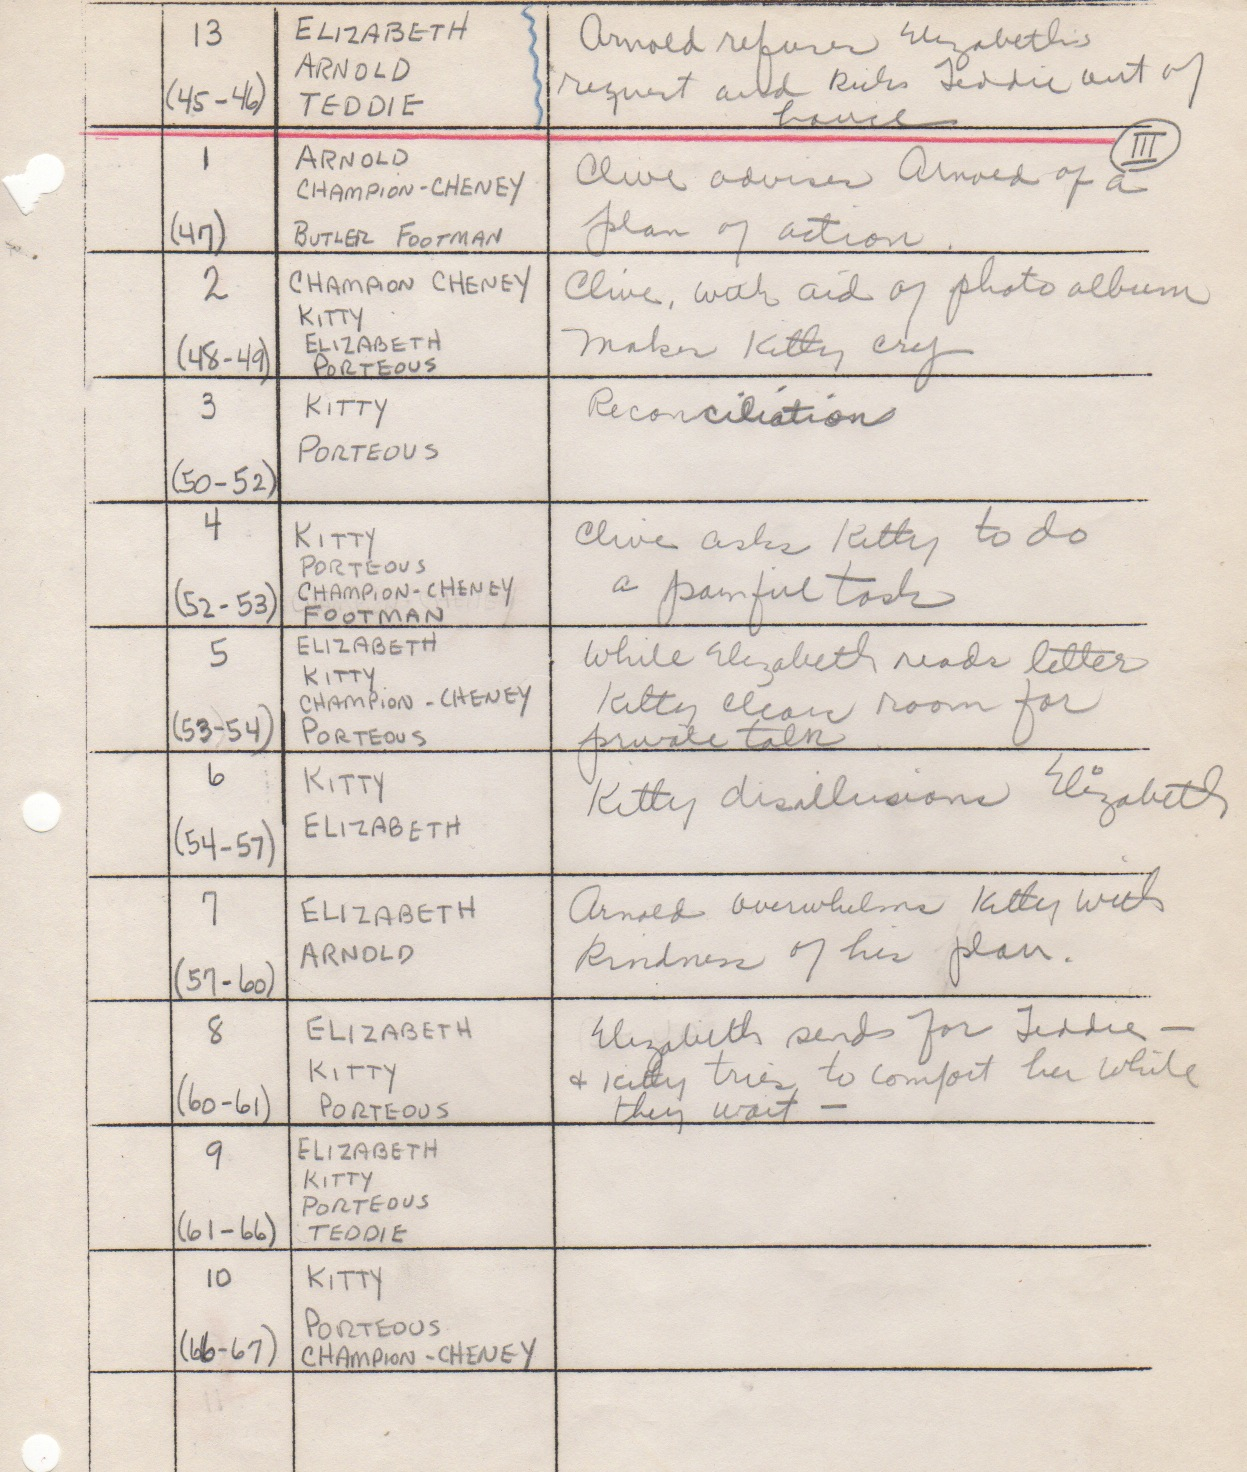 13
(45-46)
ELIZABETH
ARNOLD
TEDDIE
Arnold refuses Elizabeth's
request and kicks Teddie out of
house
III
1
(47)
ARNOLD
CHAMPION-CHENEY
BUTLER FOOTMAN
Clive advises Arnold of a
plan of action.
2
(48-49)
CHAMPION CHENEY
KITTY
ELIZABETH
PORTEOUS
Clive, with aid of photo album
makes Kitty cry
3
(50-52)
KITTY
PORTEOUS
Reconciliation
4
(52-53)
KITTY
PORTEOUS
CHAMPION-CHENEY
FOOTMAN
Clive asks Kitty to do
a painful task
5
(53-54)
ELIZABETH
KITTY
CHAMPION-CHENEY
PORTEOUS
While Elizabeth reads letter
Kitty clears room for
private talk
6
(54-57)
KITTY
ELIZABETH
Kitty disillusions Elizabeth
7
(57-60)
ELIZABETH
ARNOLD
Arnold overwhelms Kitty with
kindness of his plan.
8
(60-61)
ELIZABETH
KITTY
PORTEOUS
Elizabeth sends for Teddie -
+ Kitty tries to comfort her while
they wait -
9
(61-66)
ELIZABETH
KITTY
PORTEOUS
TEDDIE
10
(66-67)
KITTY
PORTEOUS
CHAMPION-CHENEY